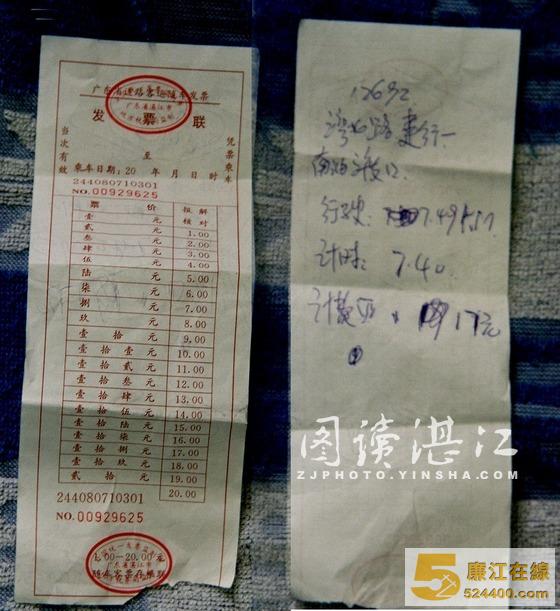 广东省道路客运随车发票
发 票 联
当次有效
凭票乘车
至
乘车日期:20 年 月 日 时
244080710301
NO.00929625
票 价 报解核对
壹 元 1.00
贰 元 2.00
叁 元 3.00
肆 元 4.00
伍 元 5.00
陆 元 6.00
柒 元 7.00
捌 元 8.00
玖 元 9.00
壹拾 元 10.00
壹拾壹元 11.00
壹拾贰元 12.00
壹拾叁元 13.00
壹拾肆元 14.00
壹拾伍元 15.00
壹拾陆元 16.00
壹拾柒元 17.00
壹拾捌元 18.00
壹拾玖元 19.00
贰拾 元 20.00
244080710301
NO.00929625
1.00—20.00元
路 建行一
行驶: 7.49
计时: 7.40.
17元
图读湛江
ZJPHOTO.YINSHA.COM
廉江在線
524400.com